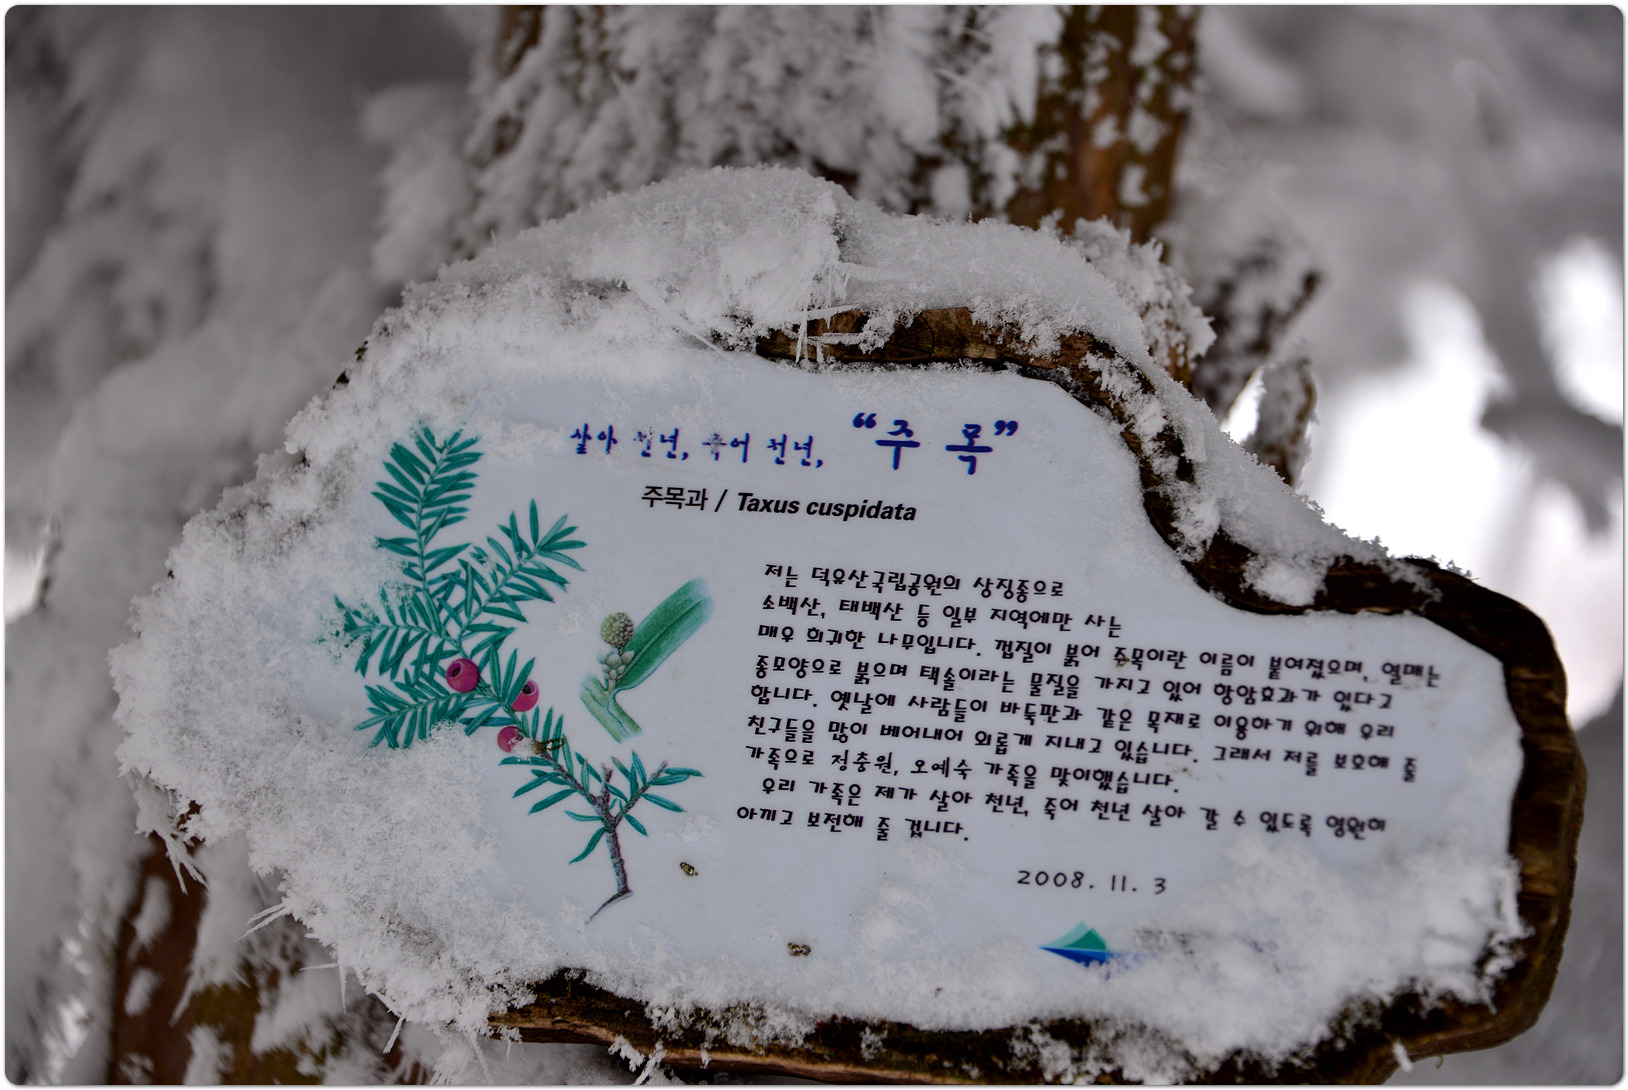 살아 천년, 죽어 천년, “주 목”
주목과 / Taxus cuspidata
저는 덕유산국립공원의 상징종으로
소백산, 태백산 등 일부 지역에만 사는
매우 희귀한 나무입니다. 껍질이 붉어 주목이란 이름이 붙여졌으며, 열매는
종모양으로 붉으며 택솔이라는 물질을 가지고 있어 항암효과가 있다고
합니다. 옛날에 사람들이 바둑판과 같은 목재로 이용하기 위해 우리
친구들을 많이 베어내어 외롭게 지내고 있습니다. 그래서 저를 보호해 줄
가족으로 정충원, 오예숙 가족을 맞이했습니다.
우리 가족은 제가 살아 천년, 죽어 천년 살아 갈 수 있도록 영원히
아끼고 보전해 줄 겁니다.
2008. 11. 3